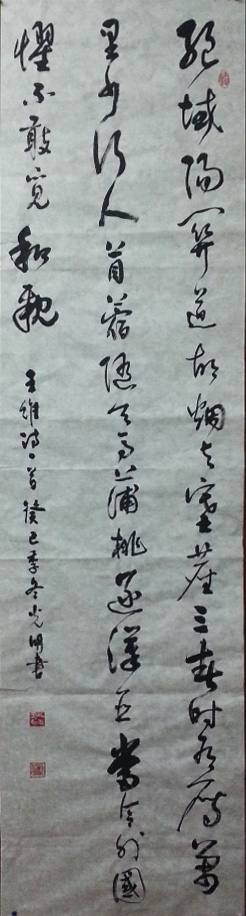 絕域陽關道胡烟与塞塵三春时有雁萬
里少行人苜蓿隨天馬蒲桃逐漢臣當令外國
懼不敢覓和親
王維詩一首癸巳季冬光明書